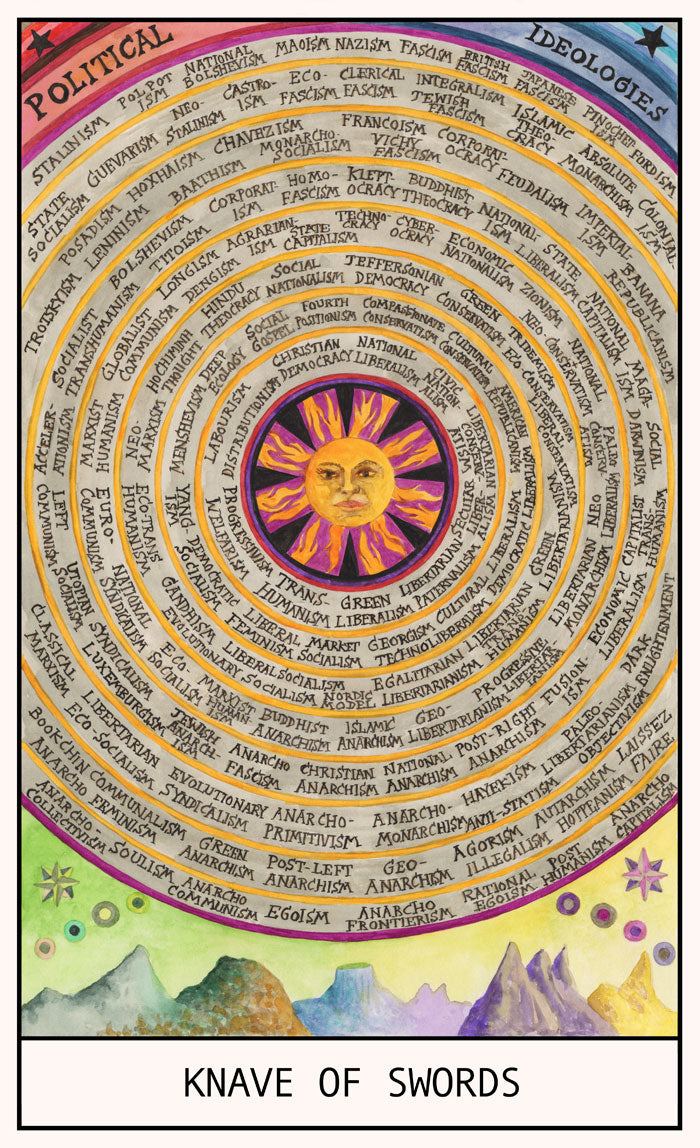 POLITICAL
IDEOLOGIES
STALINISM
POL POT
ISM
NATIONAL
BOLSHEVISM
MAOISM
NAZISM
FASCISM
BRITISH
FASCISM
JAPANESE
FASCISM
PINOCHET-
ISM
FORDISM
STATE
SOCIALISM
GUEVARISM
NEO-
STALINISM
CASTRO-
ISM
ECO-
FASCISM
CLERICAL
FASCISM
INTEGRALISM
JEWISH
FASCISM
ISLAMIC
THEO
CRACY
ABSOLUTE
MONARCHISM
COLONIAL-
ISM
TROTSKYISM
POSADISM
HOXHAISM
CHAVEZISM
MONARCHO-
SOCIALISM
FRANCOISM
VICHY
FASCISM
CORPORAT-
OCRACY
FEUDALISM
IMPERIAL-
ISM
BANANA
REPUBLICANISM
LENINISM
BAATHISM
HOMO-
FASCISM
KLEPT-
OCRACY
BUDDHIST
THEOCRACY
SOCIALIST
TRANSHUMANISM
BOLSHEVISM
TITOISM
CORPORAT-
ISM
NATIONAL-
ISM
STATE
CAPITALISM
NATIONAL
LIBERALISM
MAGA-
ISM
GLOBALIST
COMMUNISM
LONGISM
DENGISM
AGRARIAN-
ISM
STATE
CAPITALISM
TECHNO-
CRACY
CYBER-
OCRACY
ECONOMIC
NATIONALISM
ZIONISM
HOCHIMINH
THOUGHT
HINDU
THEOCRACY
SOCIAL
NATIONALISM
JEFFERSONIAN
DEMOCRACY
GREEN
CONSERVATISM
TRIDEMISM
NEO
CONSERVATISM
DEEP
ECOLOGY
SOCIAL
GOSPEL
FOURTH
POSITIONISM
COMPASSIONATE
CONSERVATISM
CULTURAL
CONSERVATISM
AMERICAN
REPUBLICANISM
LABOURISM
DISTRIBUTIONISM
CHRISTIAN
DEMOCRACY
NATIONAL
LIBERALISM
CIVIC
NATION
ALISM
LIBERTARIAN
CONSERV-
ATISM
SECULAR
LIBER-
ALISM
ACCELER-
ATIONISM
MARXIST
HUMANISM
NEO-
MARXISM
MENSHEVISM
SOCIAL
DARWINISM
PALEO
CONSERV
ATISM
LEFT
COMMUNISM
EURO-
COMMUNISM
ECO-TRANS
HUMANISM
YANG
ISM
PROGRESSIVISM
WELFARISM
TRANS-
HUMANISM
GREEN
LIBERALISM
LIBERTARIAN
PATERNALISM
DEMOCRATIC
SOCIALISM
LIBERAL
FEMINISM
MARKET
SOCIALISM
GEORGISM
TECHNOLIBERALISM
CULTURAL
LIBERALISM
DEMOCRATIC LIBERALISM
GANDHISM
EVOLUTIONARY
LIBERAL
SOCIALISM
SOCIALISM
NORDIC
MODEL
EGALITARIAN
LIBERTARIANISM
LIBERTARIAN
HUMANISM
GREEN
LIBERTARIANISM
UTOPIAN
SOCIALISM
NATIONAL
SYNDICALISM
ECO-
SOCIALISM
MARXIST
HUMAN-
ISM
BUDDHIST
ANARCHISM
ISLAMIC
ANARCHISM
GEO-
LIBERTARIANISM
PROGRESSIVE
LIBERTAR-
IANISM
LIBERTARIAN
MONARCHISM
NEO
LIBERALISM
CAPITALIST
TRANS-
HUMANISM
CLASSICAL
MARXISM
SYNDICALISM
LUXEMBURGISM
JEWISH
ANARCH-
ISM
ANARCHO
FASCISM
CHRISTIAN
ANARCHISM
NATIONAL
ANARCHISM
POST-RIGHT
ANARCHISM
FUSION-
ISM
ECONOMIC
LIBERALISM
DARK
ENLIGHTENMENT
BOOKCHIN COMMUNALISM
LIBERTARIAN
ECO SOCIALISM
EVOLUTIONARY
SYNDICALISM
ANARCHO-
PRIMITIVISM
ANARCHO-
MONARCHIST
HAYEK-ISM
ANTI-STATISM
PALEO
LIBERTARIANISM
OBJECTIVISM
LAISSEZ
FAIRE
ANARCHO FEMINISM
GREEN
ANARCHISM
POST-LEFT
ANARCHISM
GEO-
ANARCHISM
AGORISM
ILLEGALISM
AUTARCHISM
HOPPEANISM
ANARCHO
CAPITALISM
ANARCHO-
COLLECTIVISM
SOULISM
ANARCHO
COMMUNISM
EGOISM
ANARCHO
FRONTIERISM
RATIONAL
EGOISM
POST
HUMANISM
KNAVE OF SWORDS